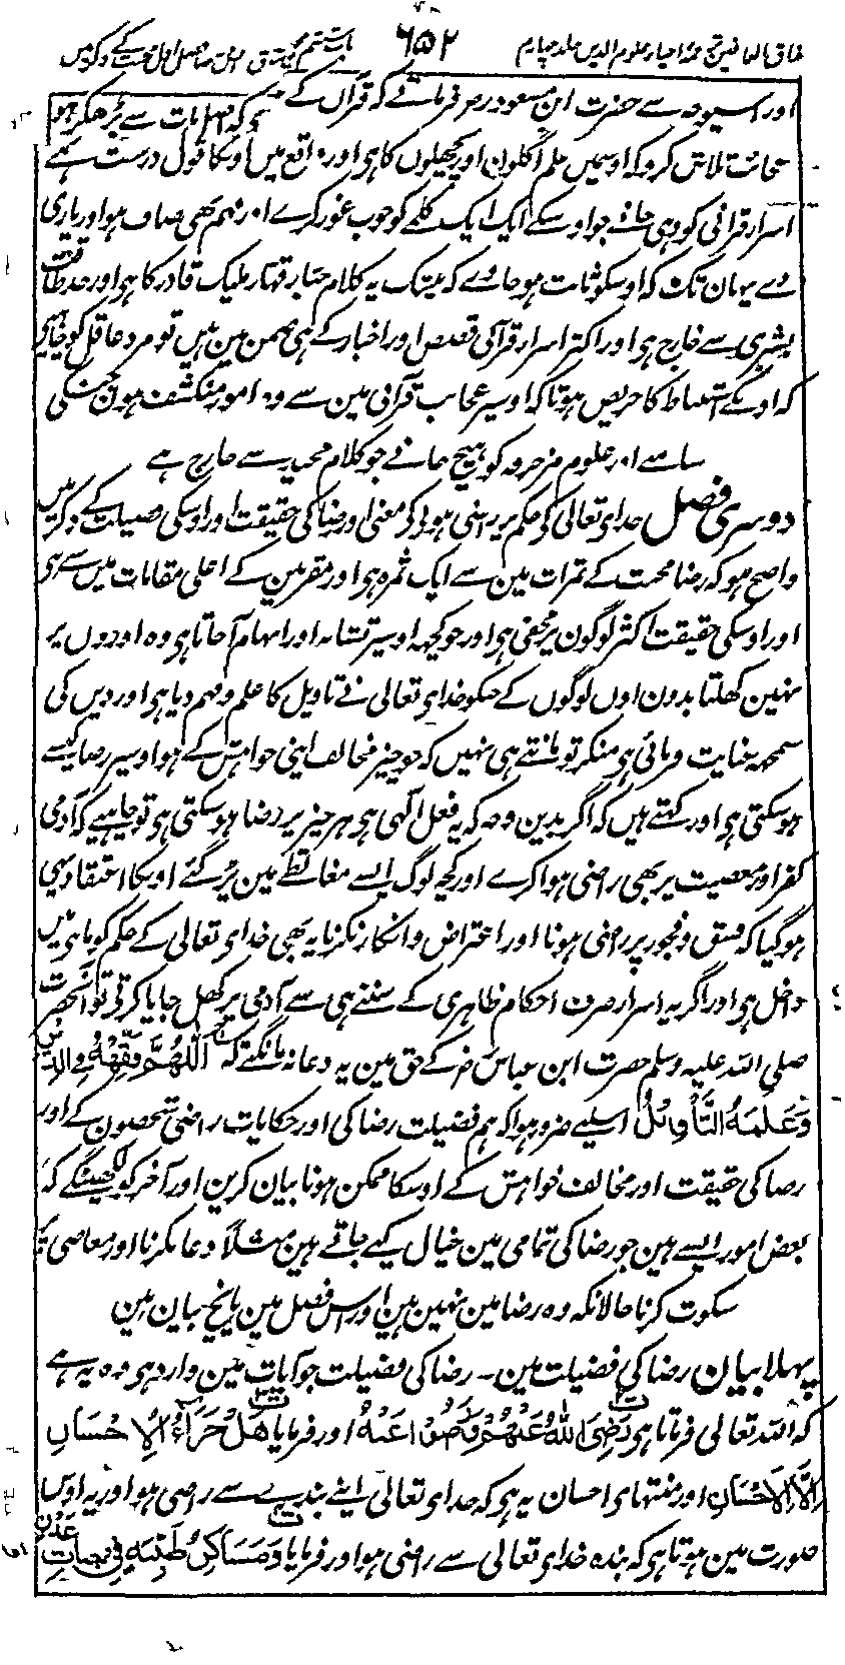 مذاق العارفین ترجمہ احیاء علوم الدین جلد چہارم
۶۵۲
باب ششم کے متعلق
اور اسیوجہ سے حضرت ابن مسعود رض فرماتے کہ قرآں کے
عجائب تلاش کرو کہ اوسمیں علم اگلوں اور پچھلوں کا ہی اور واقع میں اوسکا قول درست ہے
اسرار قرآنی کو وہی جانے جو اوسکے ایک ایک کلمے کو خوب غور کرے اور فہم بھی صاف ہو اور یاری
دے یہاں تک کہ اوسکو ثابت ہوجاوے کہ بیشک یہ کلام جبار قہار ملیک قادر کا ہی اور حد طاقت
بشری سے خارج ہی اور اکثر اسرار قرآنی قصص اور اخبار کے ہی ضمن مین ہیں تو مرد عاقل کو چاہیے
کہ اونکے استنباط کا حریص ہو تاکہ اوسپر عجائب قرآنی مین سے وہ امور منکشف ہوں جنکی
سامنے اور علوم مزخرفہ کو ہیچ جانے جو کلام مجید سے خارج ہے
دوسری فصل خدای تعالی کی حکم پر راضی ہونی کی معنی اور رضا کی حقیقت اور اوسکی فضیلت کے ذکر میں
واضح ہو کہ رضا محبت کے ثمرات مین سے ایک ثمرہ ہی اور مقربین کے اعلی مقامات میں سے ہی
اور اوسکی حقیقت اکثر لوگون پر مخفی ہی اور جو کچھہ اوسپر تشابہ اور ابہام آجاتا ہی وہ اوروں پر
نہین کھلتا بدون اون لوگوں کے جنکو خدای تعالی نے تاویل کا علم و فہم دیا ہی اور دیں کی
سمجھہ عنایت فرمائی ہی منکر تو مانتے ہی نہیں کہ جو چیز مخالف اپنی خواہش کے ہو اوسپر رضا کیسے
ہوسکتی ہی اور کہتے ہیں کہ اگر بدین وجہ کہ یہ فعل الٰہی ہی ہر چیز پر رضا ہوسکتی ہی تو چاہیے کہ آدمی
کفر اور معصیت پر بھی راضی ہوا کرے اور کچھ لوگ ایسے مغالطے مین پڑگئے اونکا اعتقاد یہی
ہوگیا کہ فسق و فجور پر راضی ہونا اور اعتراض و انکار نکرنا یہ بھی خدای تعالی کے حکم کو ماننی میں
داخل ہی اور اگر یہ اسرار صرف احکام ظاہری کے سننے ہی سے آدمی پر کھل جایا کرتی تو آنحضرت
صلی اللہ علیہ وسلم حضرت ابن عباس رض کے حق مین یہ دعا نہ مانگتے کہ اَللّٰهُمَّ فَقِّهْهُ فِي الدِّيْنِ
وَعَلِّمْهُ التَّأْوِيْلَ اسلیے ضرور ہوا کہ ہم فضیلت رضا کی اور حکایات راضی شخصوں کے اور
رضا کی حقیقت اور مخالف خواہش کے اوسکا ممکن ہونا بیان کریں اور آخر کو لکھینگے کہ
بعض امور ایسے ہین جو رضا کی تمامی مین خیال کیے جاتے ہین مثلاً دعا نکرنا اور معاصی پر
سکوت کرنا حالانکہ وہ رضا مین نہین ہین اور اس فصل مین پانچ بیان ہین
پہلا بیان رضا کی فضیلت مین۔ رضا کی فضیلت جو آیات مین وارد ہی وہ یہ ہے
کہ اللہ تعالی فرماتا ہی رَضِىَ اللّٰهُ عَنْهُمْ وَرَضُوْا عَنْهُ اور فرمایا هَلْ جَزَآءُ الْاِحْسَانِ
اِلَّا الْاِحْسَانُ اور منتہای احسان یہ ہی کہ خدای تعالی اپنے بندے سے راضی ہو اور یہ اوس
صورت مین ہوتا ہی کہ بندہ خدای تعالی سے راضی ہو اور فرمایا وَمَسَاكِنَ طَيِّبَةً فِيْ جَنَّاتِ عَدْنٍ